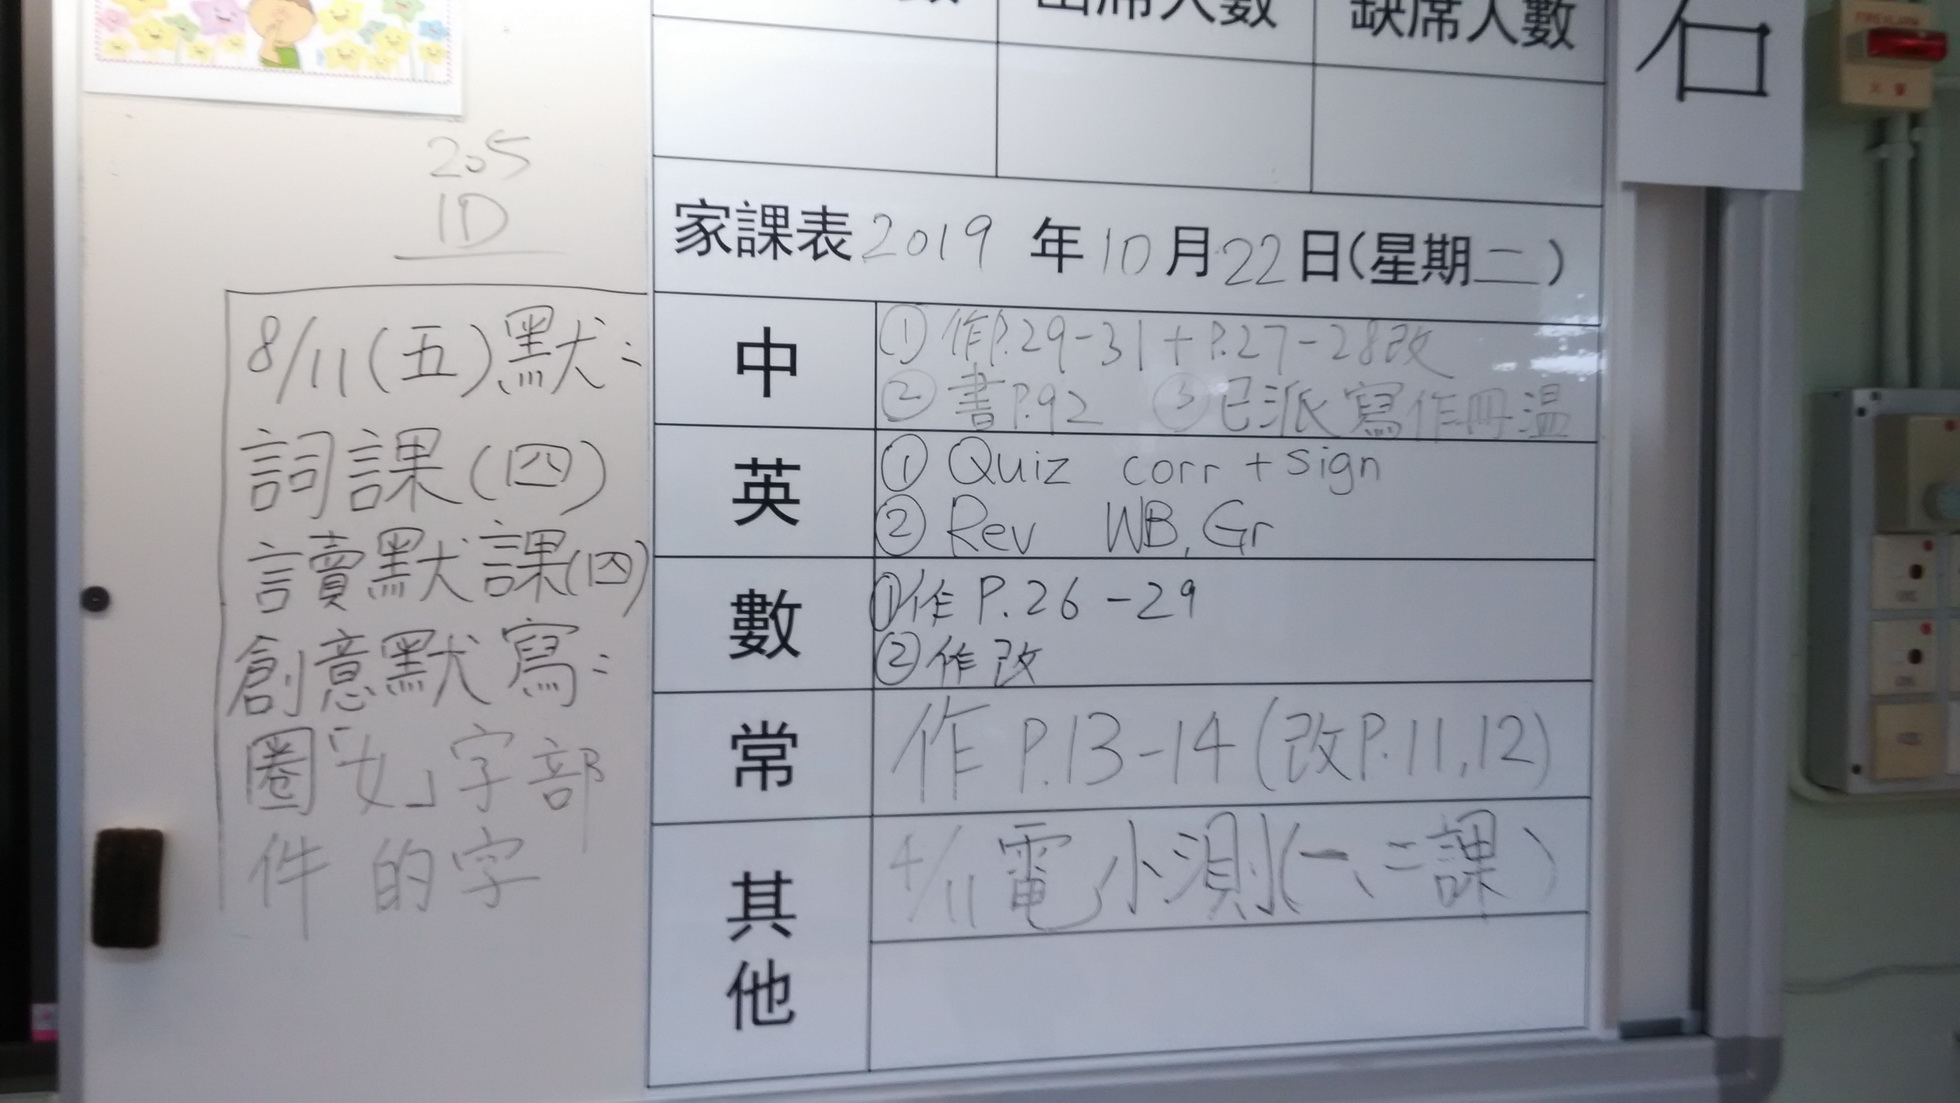 出席人數 缺席人數
石
FIRE ALARM
火警
205
1D
家課表 2019 年 10 月 22 日(星期二)
中
① 作P.29-31+P.27-28改
② 書P.92 ③ 已派寫作冊温
英
① Quiz corr + sign
② Rev WB, Gr
數
①作 P.26-29
②作改
常
作 P.13-14 (改P.11,12)
其他
4/11 電小測(一、二課)
8/11(五)默:
詞課(四)
讀默課(四)
創意默寫:
圈「女」字部
件的字